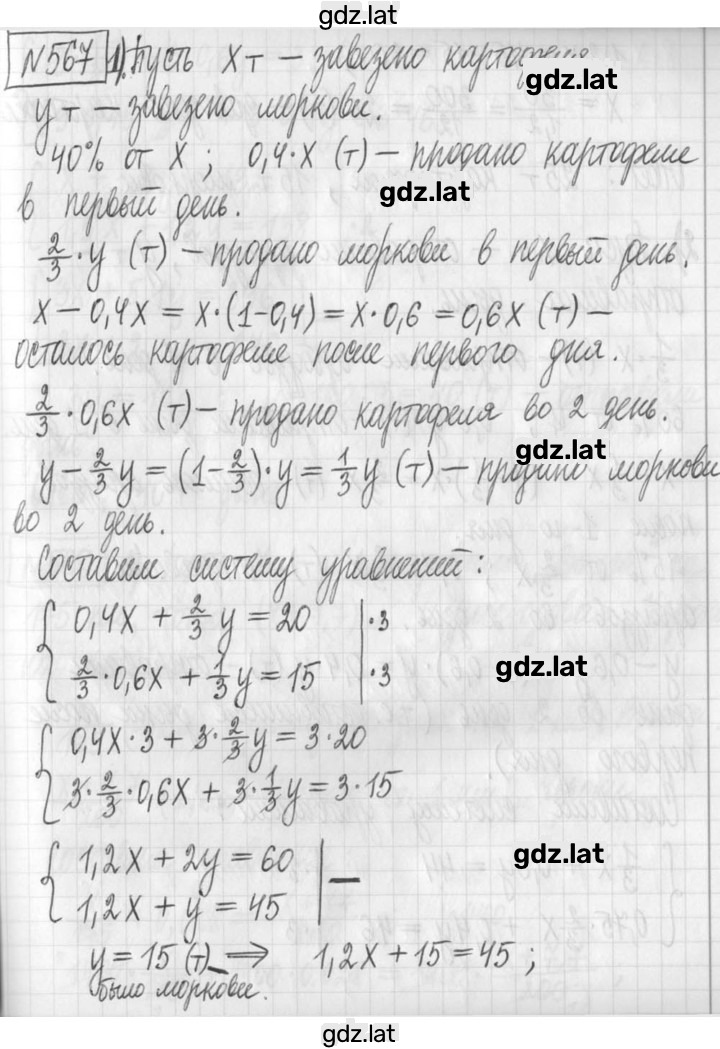 gdz.lat
№567 1) Пусть x т – завезено картофеля
gdz.lat
y т – завезено моркови.
40% от x ; 0,4·x (т) – продано картофеля
gdz.lat
в первый день.
2/3 · y (т) – продано моркови в первый день.
x – 0,4x = x·(1–0,4) = x·0,6 = 0,6x (т) –
осталось картофеля после первого дня.
2/3 · 0,6x (т) – продано картофеля во 2 день.
gdz.lat
y – 2/3 y = (1 – 2/3)·y = 1/3 y (т) – продано моркови
во 2 день.
Составим систему уравнений:
{ 0,4x + 2/3 y = 20 | ·3
2/3 · 0,6x + 1/3 y = 15 | ·3
gdz.lat
{ 0,4x·3 + 3·2/3 y = 3·20
3·2/3·0,6x + 3·1/3 y = 3·15
{ 1,2x + 2y = 60 | –
gdz.lat
1,2x + y = 45
y = 15 (т) – ⇒ 1,2x + 15 = 45 ;
было моркови.
gdz.lat